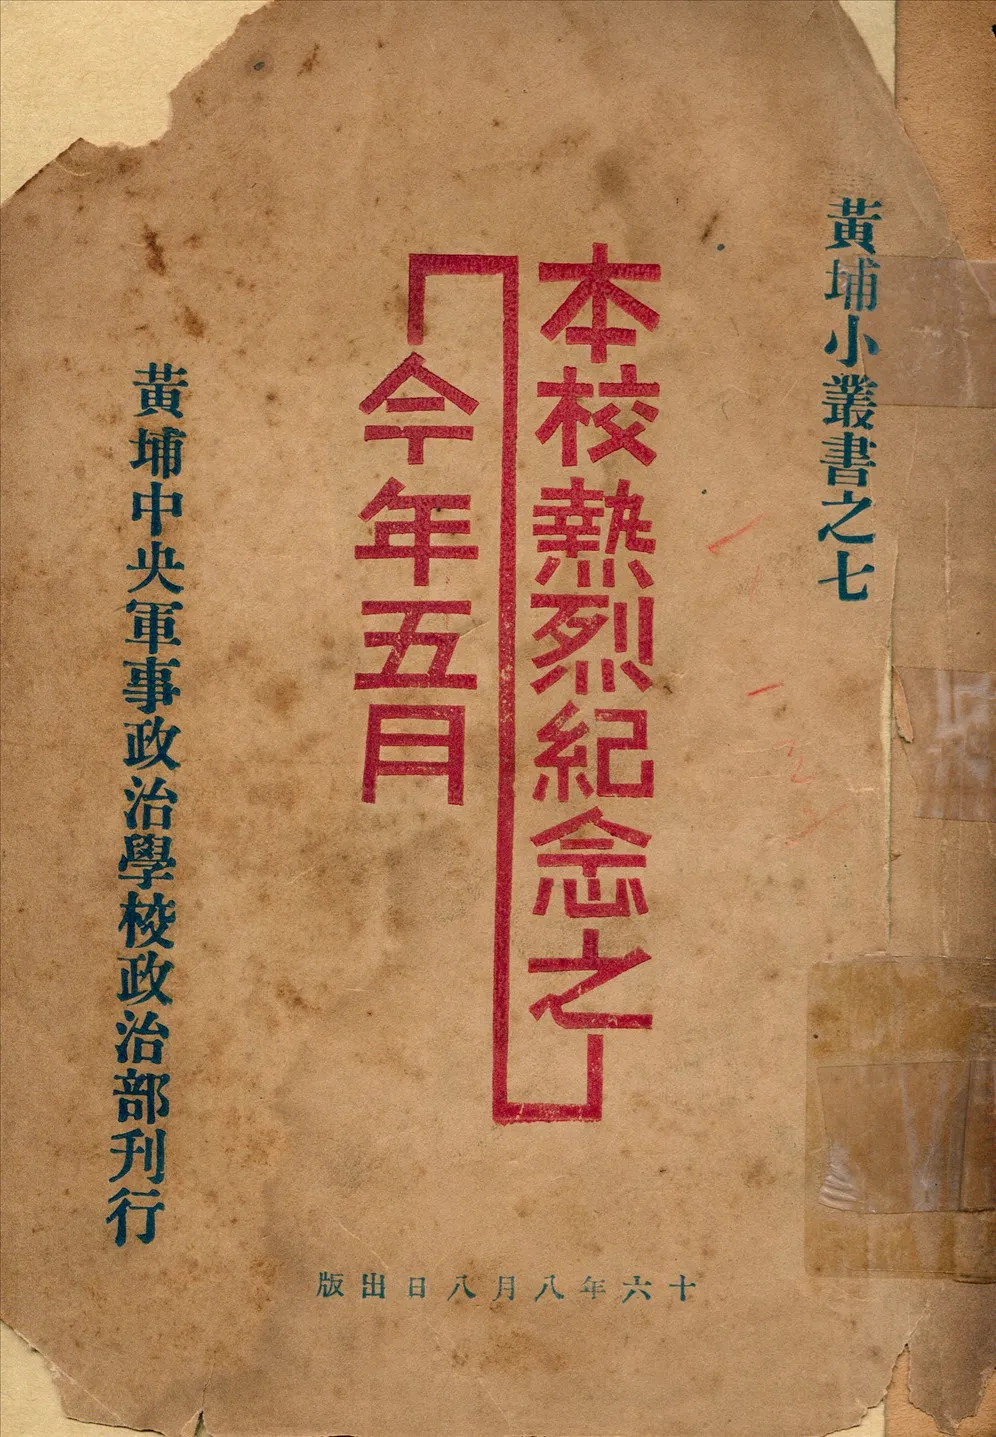 黃埔小叢書之七
本校熱烈紀念之
今年五月
黃埔中央軍事政治學校政治部刊行
十六年八月八日出版